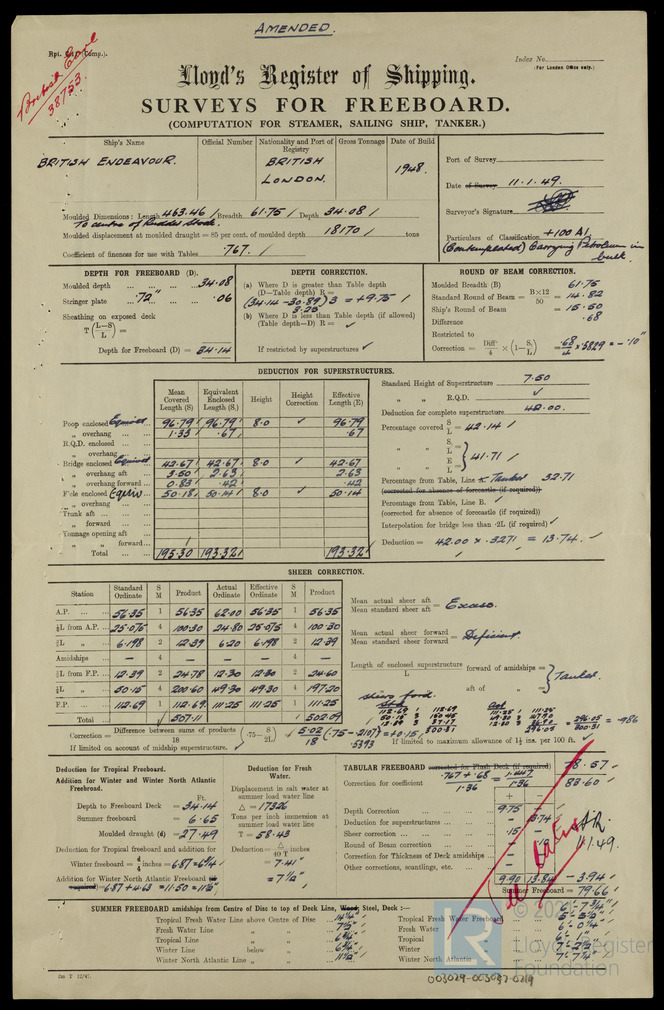 AMENDED.
Rpt.
British Earl
38753
Index No.
(For London Office only.)
Lloyd's Register of Shipping.
SURVEYS FOR FREEBOARD.
(COMPUTATION FOR STEAMER, SAILING SHIP, TANKER.)
Ship's Name Official Number Nationality and Port of Registry Gross Tonnage Date of Build
BRITISH ENDEAVOUR. BRITISH LONDON. 1948.
Port of Survey
Date of Survey 11.1.49.
Surveyor's Signature
Particulars of Classification +100 A1
(Contemplated) Carrying Petroleum in bulk.
Moulded Dimensions: Length 463.46 Breadth 61.75 Depth 34.08
To centre of Rudder Stock.
Moulded displacement at moulded draught = 85 per cent. of moulded depth 18170 tons
Coefficient of fineness for use with Tables .767.
DEPTH FOR FREEBOARD (D).
Moulded depth ... 34.08
Stringer plate .72" ... .06
Sheathing on exposed deck
T (L—S / L) =
Depth for Freeboard (D) = 34.14
DEPTH CORRECTION.
(a) Where D is greater than Table depth
(D—Table depth) R =
(34.14 - 30.89) 3 = +9.75
3.25
(b) Where D is less than Table depth (if allowed)
(Table depth—D) R = ✓
If restricted by superstructures ✓
ROUND OF BEAM CORRECTION.
Moulded Breadth (B) 61.75
Standard Round of Beam = B×12 / 50 = 14.82
Ship's Round of Beam = 15.50
Difference .68
Restricted to
Correction = Diff. / 4 × (1— S₁ / L) = .68 / 4 × .5829 = -.10"
DEDUCTION FOR SUPERSTRUCTURES.
Mean Covered Length (S) Equivalent Enclosed Length (S₁) Height Height Correction Effective Length (E)
Poop enclosed Equiv 96.79 96.79 8.0 ✓ 96.79
„ overhang 1.33 .67 .67
R.Q.D. enclosed
„ overhang
Bridge enclosed Equiv 42.67 42.67 8.0 ✓ 42.67
„ overhang aft 3.50 2.63 2.63
„ overhang forward 0.83 .42 .42
F'cle enclosed Equiv. 50.18 50.14 8.0 50.14
„ overhang
Trunk aft
„ forward
Tonnage opening aft
„ „ forward
Total 195.30 193.32 193.32
Standard Height of Superstructure 7.50
„ „ R.Q.D. ✓
Deduction for complete superstructure 42.00.
Percentage covered S / L = 42.14
„ „ S₁ / L =
„ „ E / L = 41.71
Percentage from Table, Line Tanker 32.71
(corrected for absence of forecastle (if required))
Percentage from Table, Line B. ✓
(corrected for absence of forecastle (if required))
Interpolation for bridge less than ·2L (if required) ✓
Deduction = 42.00 x .3271 = 13.74.
SHEER CORRECTION.
Station Standard Ordinate S M Product Actual Ordinate Effective Ordinate S M Product
A.P. 56.35 1 56.35 62.00 56.35 1 56.35
⅙L from A.P. 25.075 4 100.30 24.80 25.075 4 100.30
⅓L „ 6.198 2 12.39 6.20 6.198 2 12.39
Amidships — 4 — — — 4 —
⅓L from F.P. 12.39 2 24.78 12.30 12.30 2 24.60
⅙L „ 50.15 4 200.60 49.30 49.30 4 197.20
F.P. 112.69 1 112.69 111.25 111.25 1 111.25
Total 507.11 502.09
Mean actual sheer aft / Mean standard sheer aft = Excess.
Mean actual sheer forward / Mean standard sheer forward = Deficient
Length of enclosed superstructure / L forward of amidships =
„ „ aft of „ = Tanker.
Sheer ford.
Correction = Difference between sums of products / 18 (·75— S / 2L) = 5.02 / 18 (.75 - .2107) = +0.15
.5393
If limited on account of midship superstructure. ✓
If limited to maximum allowance of 1½ ins. per 100 ft. ✓
Deduction for Tropical Freeboard.
Addition for Winter and Winter North Atlantic Freeboard.
Ft.
Depth to Freeboard Deck = 34.14
Summer freeboard = 6.65
Moulded draught (d) = 27.49
Deduction for Tropical freeboard and addition for
Winter freeboard = d / 4 inches = 6.87 = 6¾
Addition for Winter North Atlantic Freeboard (if required) = 6.87 + 4.63 = 11.50 = 11½"
Deduction for Fresh Water.
Displacement in salt water at summer load water line
△ = 17326
Tons per inch immersion at summer load water line
T = 58.43
Deduction = △ / 40 T inches
= 7.41"
= 7½"
TABULAR FREEBOARD corrected for Flush Deck (if required) 78.57
Correction for coefficient .767 + .68 / 1.36 = 1.447 / 1.36 83.60
+ —
Depth Correction 9.75
Deduction for superstructures — 13.74
Sheer correction .15
Round of Beam correction — .10
Correction for Thickness of Deck amidships
Other corrections, scantlings, etc.
9.90 13.84 -3.94
Summer Freeboard = 79.66
11.1.49.
SUMMER FREEBOARD amidships from Centre of Disc to top of Deck Line, Wood, Steel, Deck :—
Tropical Fresh Water Line above Centre of Disc 14¼"
Fresh Water Line „ „ 7½"
Tropical Line „ „ 6¾"
Winter Line below „ 6¾"
Winter North Atlantic Line „ „ 11½"
6'-7¾"
Tropical Fresh Water Freeboard 5'-5½"
Fresh Water „ 6'-0¼"
Tropical „ 6'-1"
Winter „ 7'-2½"
Winter North Atlantic „ 7'-7¼"
© 2021
Lloyd's Register
Foundation
Cm T 12/47.
003029-003037-0219